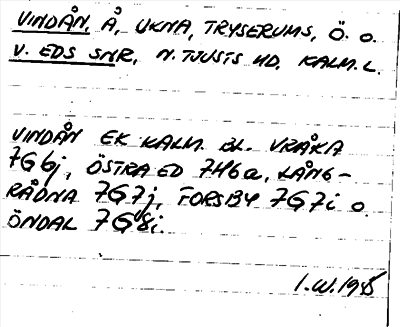 VINDÅN, Å, UKNA, TRYSERUMS, Ö. O.
V. EDS SNR, N. TJUSTS HD. KALM. L.
VINDÅN EK KALM. BL. VRÅKA
7G6j, ÖSTRA ED 7H6a, LÅNG-
RÅDNA 7G7j, TORSBY 7G7i O.
ÖNDAL 7G8i.
I.W.